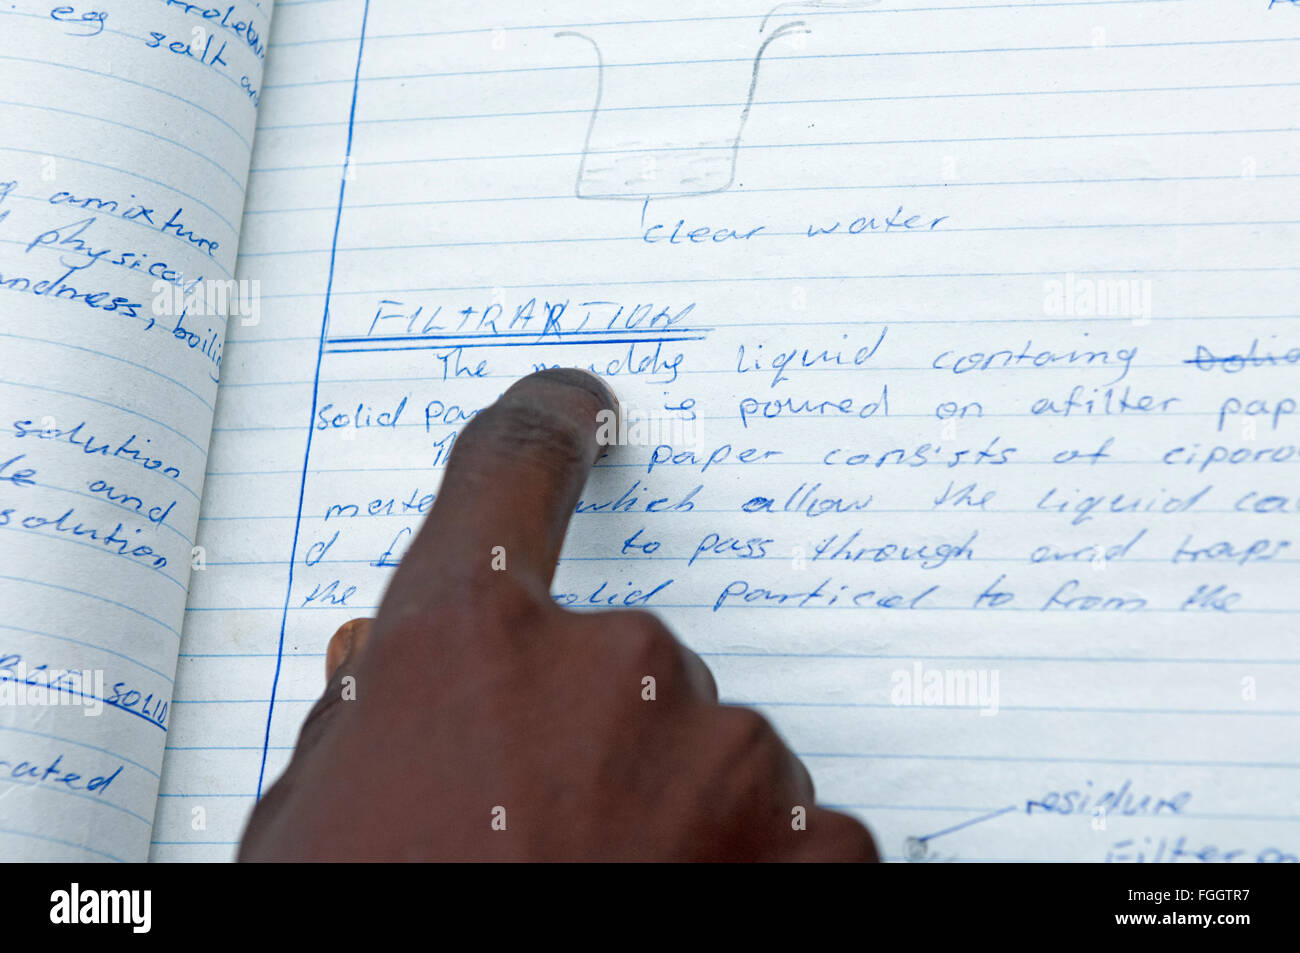 eg salt
amixture
physical
ndness, boiling
solution
and
solution
BLE SOLID
rated
clear water
FILTRAXTION
The muddy liquid containg
solid is poured on afilter pap
paper consists of ciporo
which allow the liquid ca
d to pass through and traps
the solid particel to from the
residure
Filter
alamy
Image ID: FGGTR7
www.alamy.com